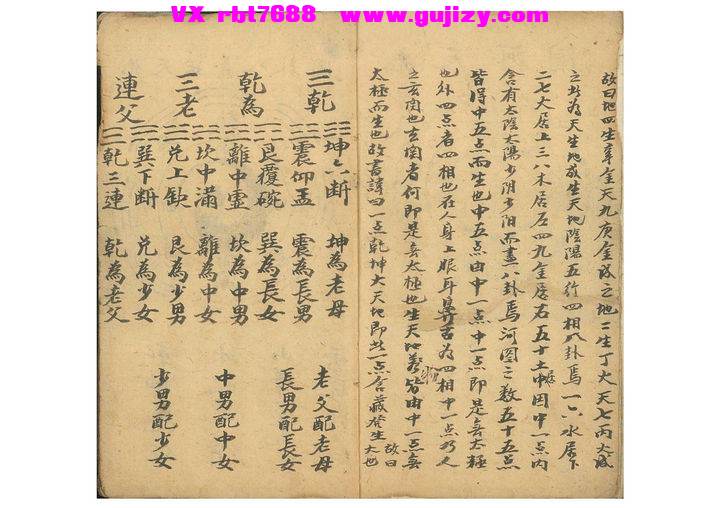 VX rbt7688 www.gujizy.com
故曰地四生辛金天九庚金成之地二生丁火天七丙火成
之此為天生地成生天地陰陽五行四相八卦焉一六水居下
二七火居上三八木居左四九金居右五十土居中因中一点内
含有太陰太陽少阴少阳而畫八卦焉河图之数五十五点
皆得中五点而生也中五点由中一点中一点即是無太極
也外四点者四相也在人身上眼耳鼻舌為四相中一点乃人
之玄関也玄関者何即是無太極也生天地萬物皆由中一点無
太極而生也故書諱曰一点乾坤大天地即此一点含藏發生
故曰
三乾
乾為
三老
連父
坤六断 坤為老母 老父配老母
震仰盂 震為長男 長男配長女
艮覆碗 巽為長女
離中虛 坎為中男 中男配中女
坎中滿 離為中女
兌上缺 艮為少男 少男配少女
巽下断 兌為少女
乾三連 乾為老父